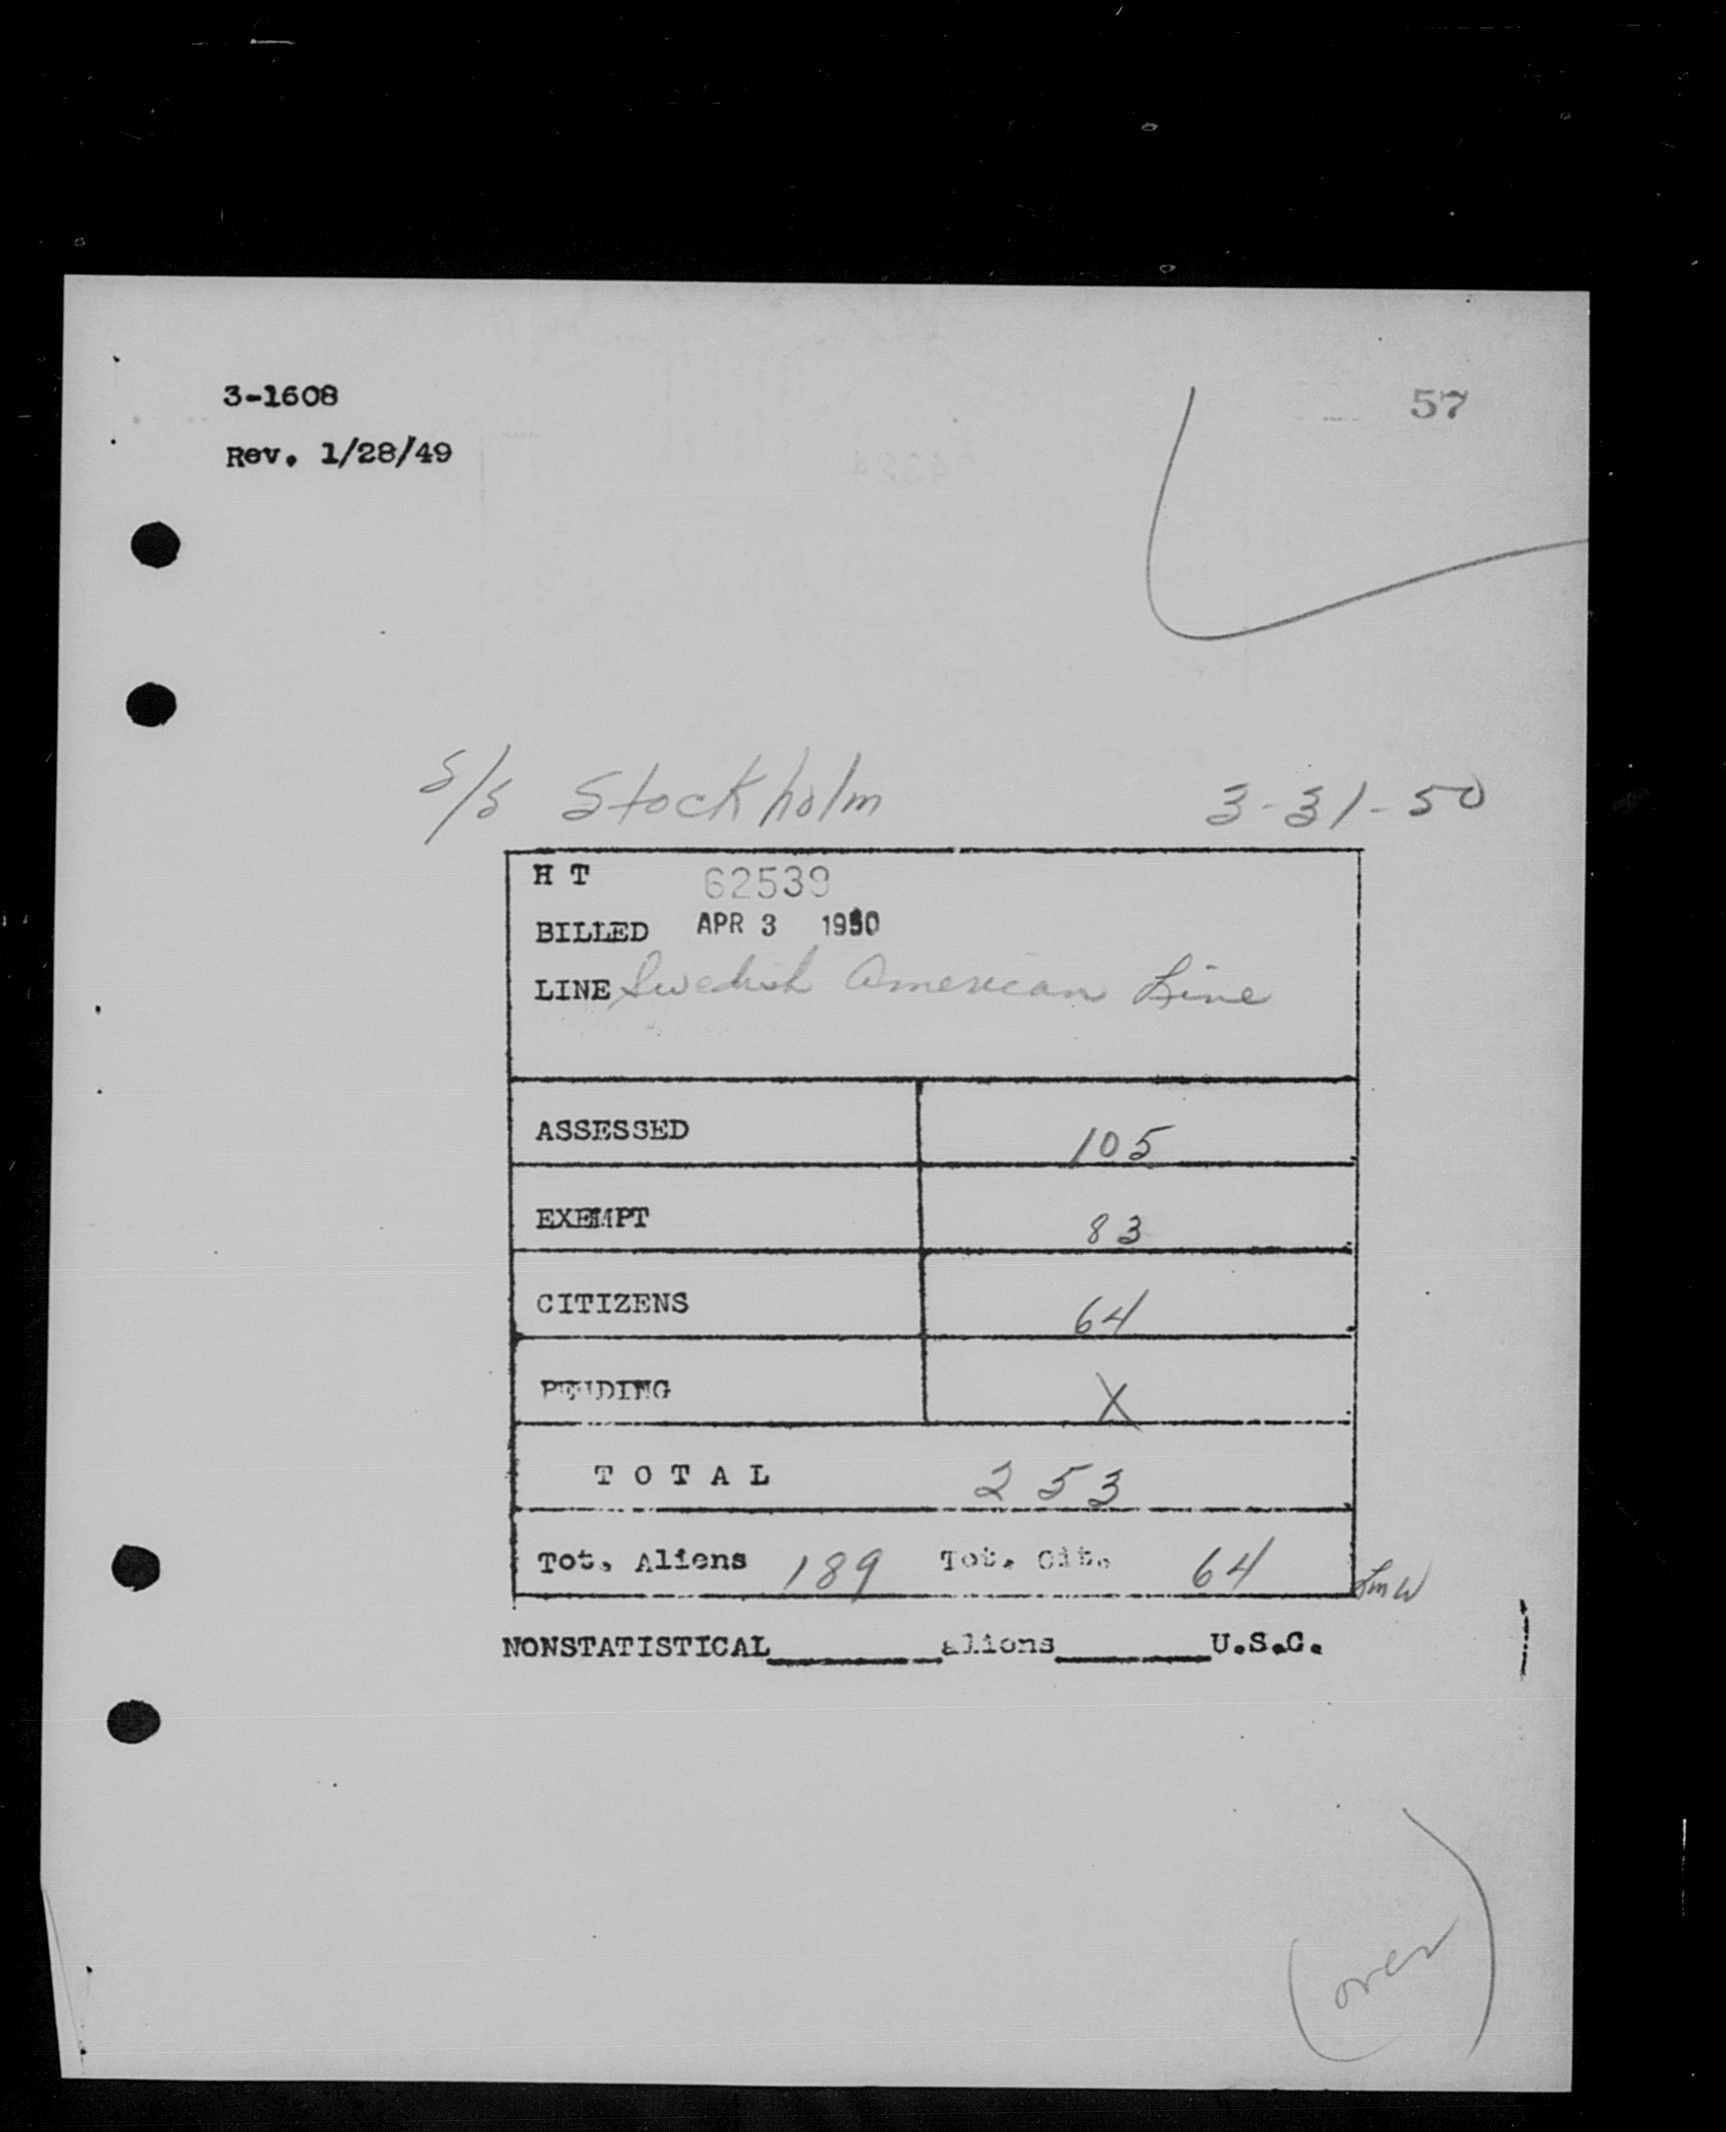 3-1608
57
Rev. 1/28/49
S/S Stockholm 3-31-50
H T 62539
BILLED APR 3 1950
LINE Swedish American Line
ASSESSED 105
EXEMPT 83
CITIZENS 64
PENDING X
T O T A L 253
Tot. Aliens 189 Tot. Cit. 64
LmW
NONSTATISTICAL______aliens______U.S.C.
(over)